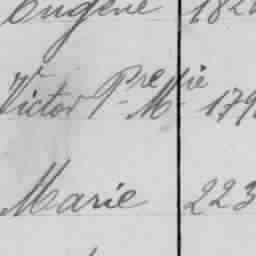 Eugène 182
Victor P.re M.rie 179
Marie 223